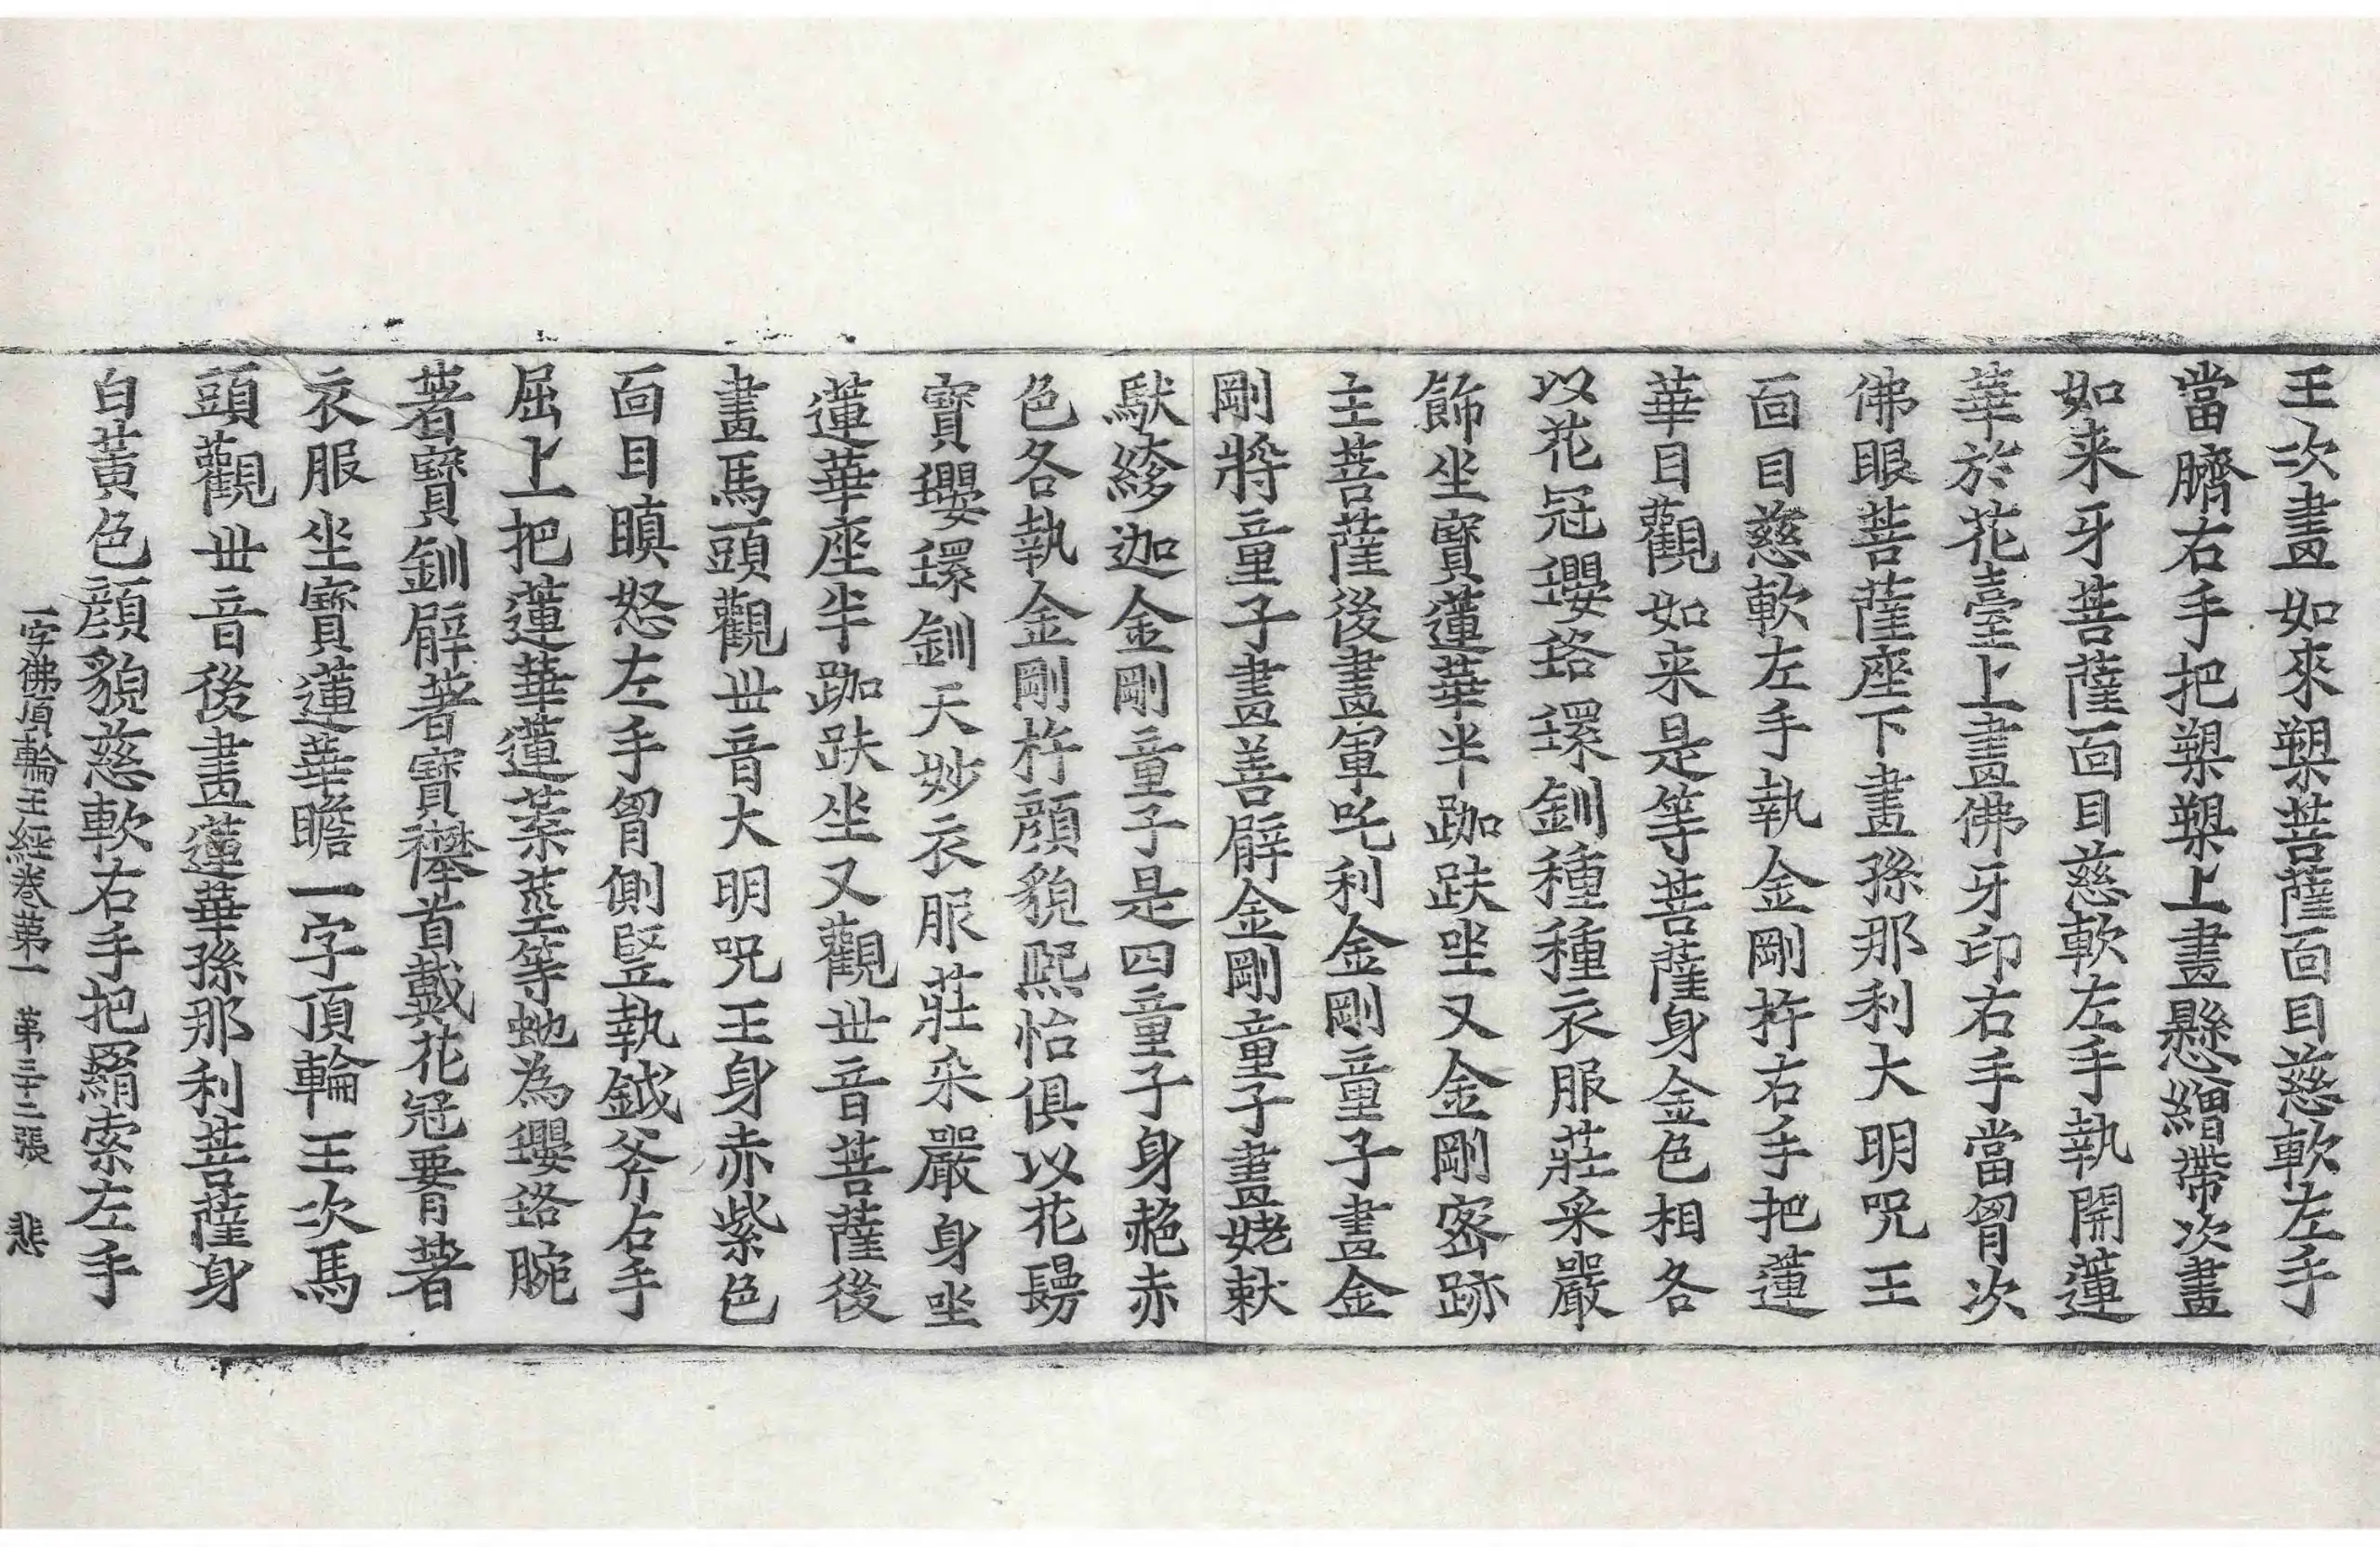 王次畫如來槊菩薩面目慈軟左手
當臍右手把槊槊上畫懸繒帶次畫
如来牙菩薩面目慈軟左手執開蓮
華於花臺上畫佛牙印右手當胷次
佛眼菩薩座下畫孫那利大明呪王
面目慈軟左手執金剛杵右手把蓮
華目觀如来是等菩薩身金色相各
以花冠瓔珞環釧種種衣服莊采嚴
飾坐寶蓮華半跏趺坐又金剛密跡
主菩薩後畫軍吒利金剛童子畫金
剛將童子畫善臂金剛童子畫姥𪍿
馱絼迦金剛童子是四童子身赩赤
色各執金剛杵顔貌熈怡俱以花鬘
寶瓔環釧天妙衣服莊采嚴身坐
蓮華座半跏趺坐又觀世音菩薩後
畫馬頭觀世音大明呪王身赤紫色
面目瞋怒左手胷側豎執鉞斧右手
屈上把蓮華蓮葉莖等虵為瓔珞腕
著寶釧臂著寶襷首戴花冠要著
衣服坐寶蓮華瞻一字頂輪王次馬
頭觀世音後畫蓮華孫那利菩薩身
白黃色顔貌慈軟右手把羂索左手
一字佛頂輪王經卷第一　第三十二張　悲